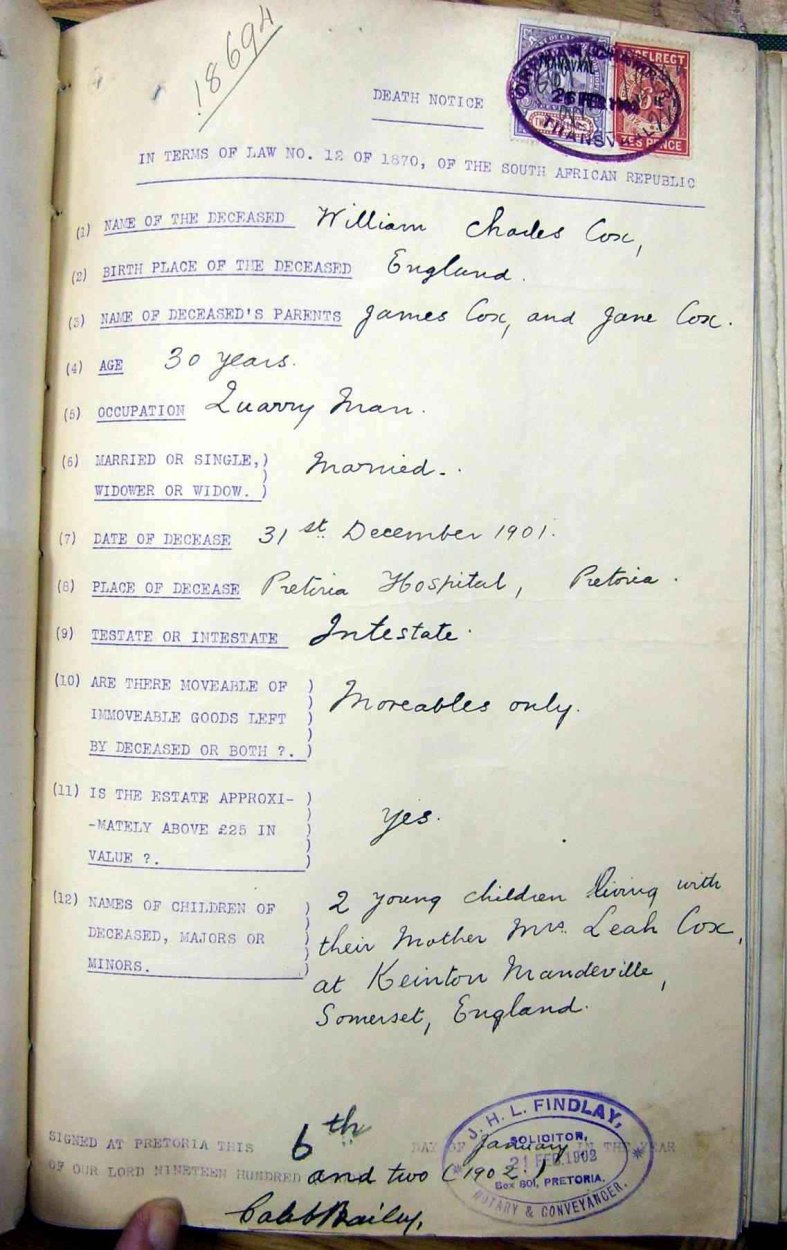 18694
DEATH NOTICE
TRANSVAAL
26 FEB 1902
TRANSVAAL
ZES PENCE
IN TERMS OF LAW NO. 12 OF 1870, OF THE SOUTH AFRICAN REPUBLIC
(1) NAME OF THE DECEASED William Charles Cox,
(2) BIRTH PLACE OF THE DECEASED England.
(3) NAME OF DECEASED'S PARENTS James Cox, and Jane Cox.
(4) AGE 30 years.
(5) OCCUPATION Quarry Man.
(6) MARRIED OR SINGLE,) Married.
WIDOWER OR WIDOW. )
(7) DATE OF DECEASE 31st December 1901.
(8) PLACE OF DECEASE Pretoria Hospital, Pretoria.
(9) TESTATE OR INTESTATE Intestate.
(10) ARE THERE MOVEABLE OF ) Moveables only.
IMMOVEABLE GOODS LEFT )
BY DECEASED OR BOTH ?. )
(11) IS THE ESTATE APPROXI- )
-MATELY ABOVE £25 IN ) yes.
VALUE ?. )
(12) NAMES OF CHILDREN OF ) 2 young children living with
DECEASED, MAJORS OR ) their Mother Mrs. Leah Cox,
MINORS. ) at Keinton Mandeville,
Somerset, England.
SIGNED AT PRETORIA THIS 6th DAY OF January IN THE YEAR
OF OUR LORD NINETEEN HUNDRED and two (1902.)
Caleb Bailey,
J. H. L. FINDLAY,
SOLICITOR,
21 FEB. 1902
Box 801, PRETORIA.
NOTARY & CONVEYANCER.